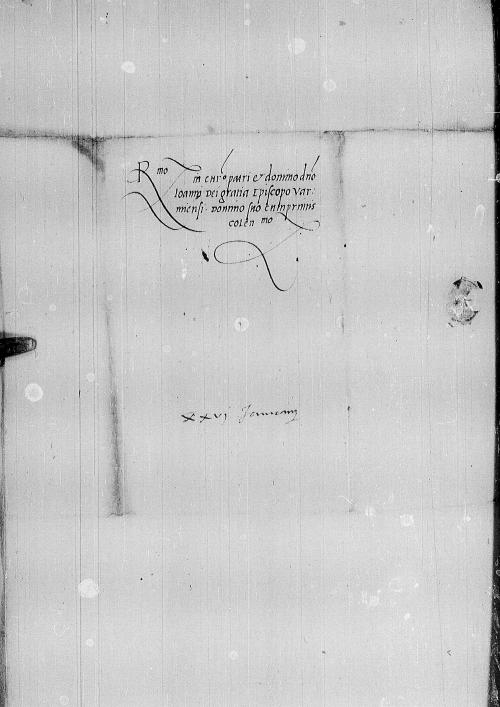 R mo in chr̄o patri et domino dn̄o
Ioanni Dei gratia Episcopo Var:
miensi. Domino suo inprimis
colen mo
xxvj Januarij